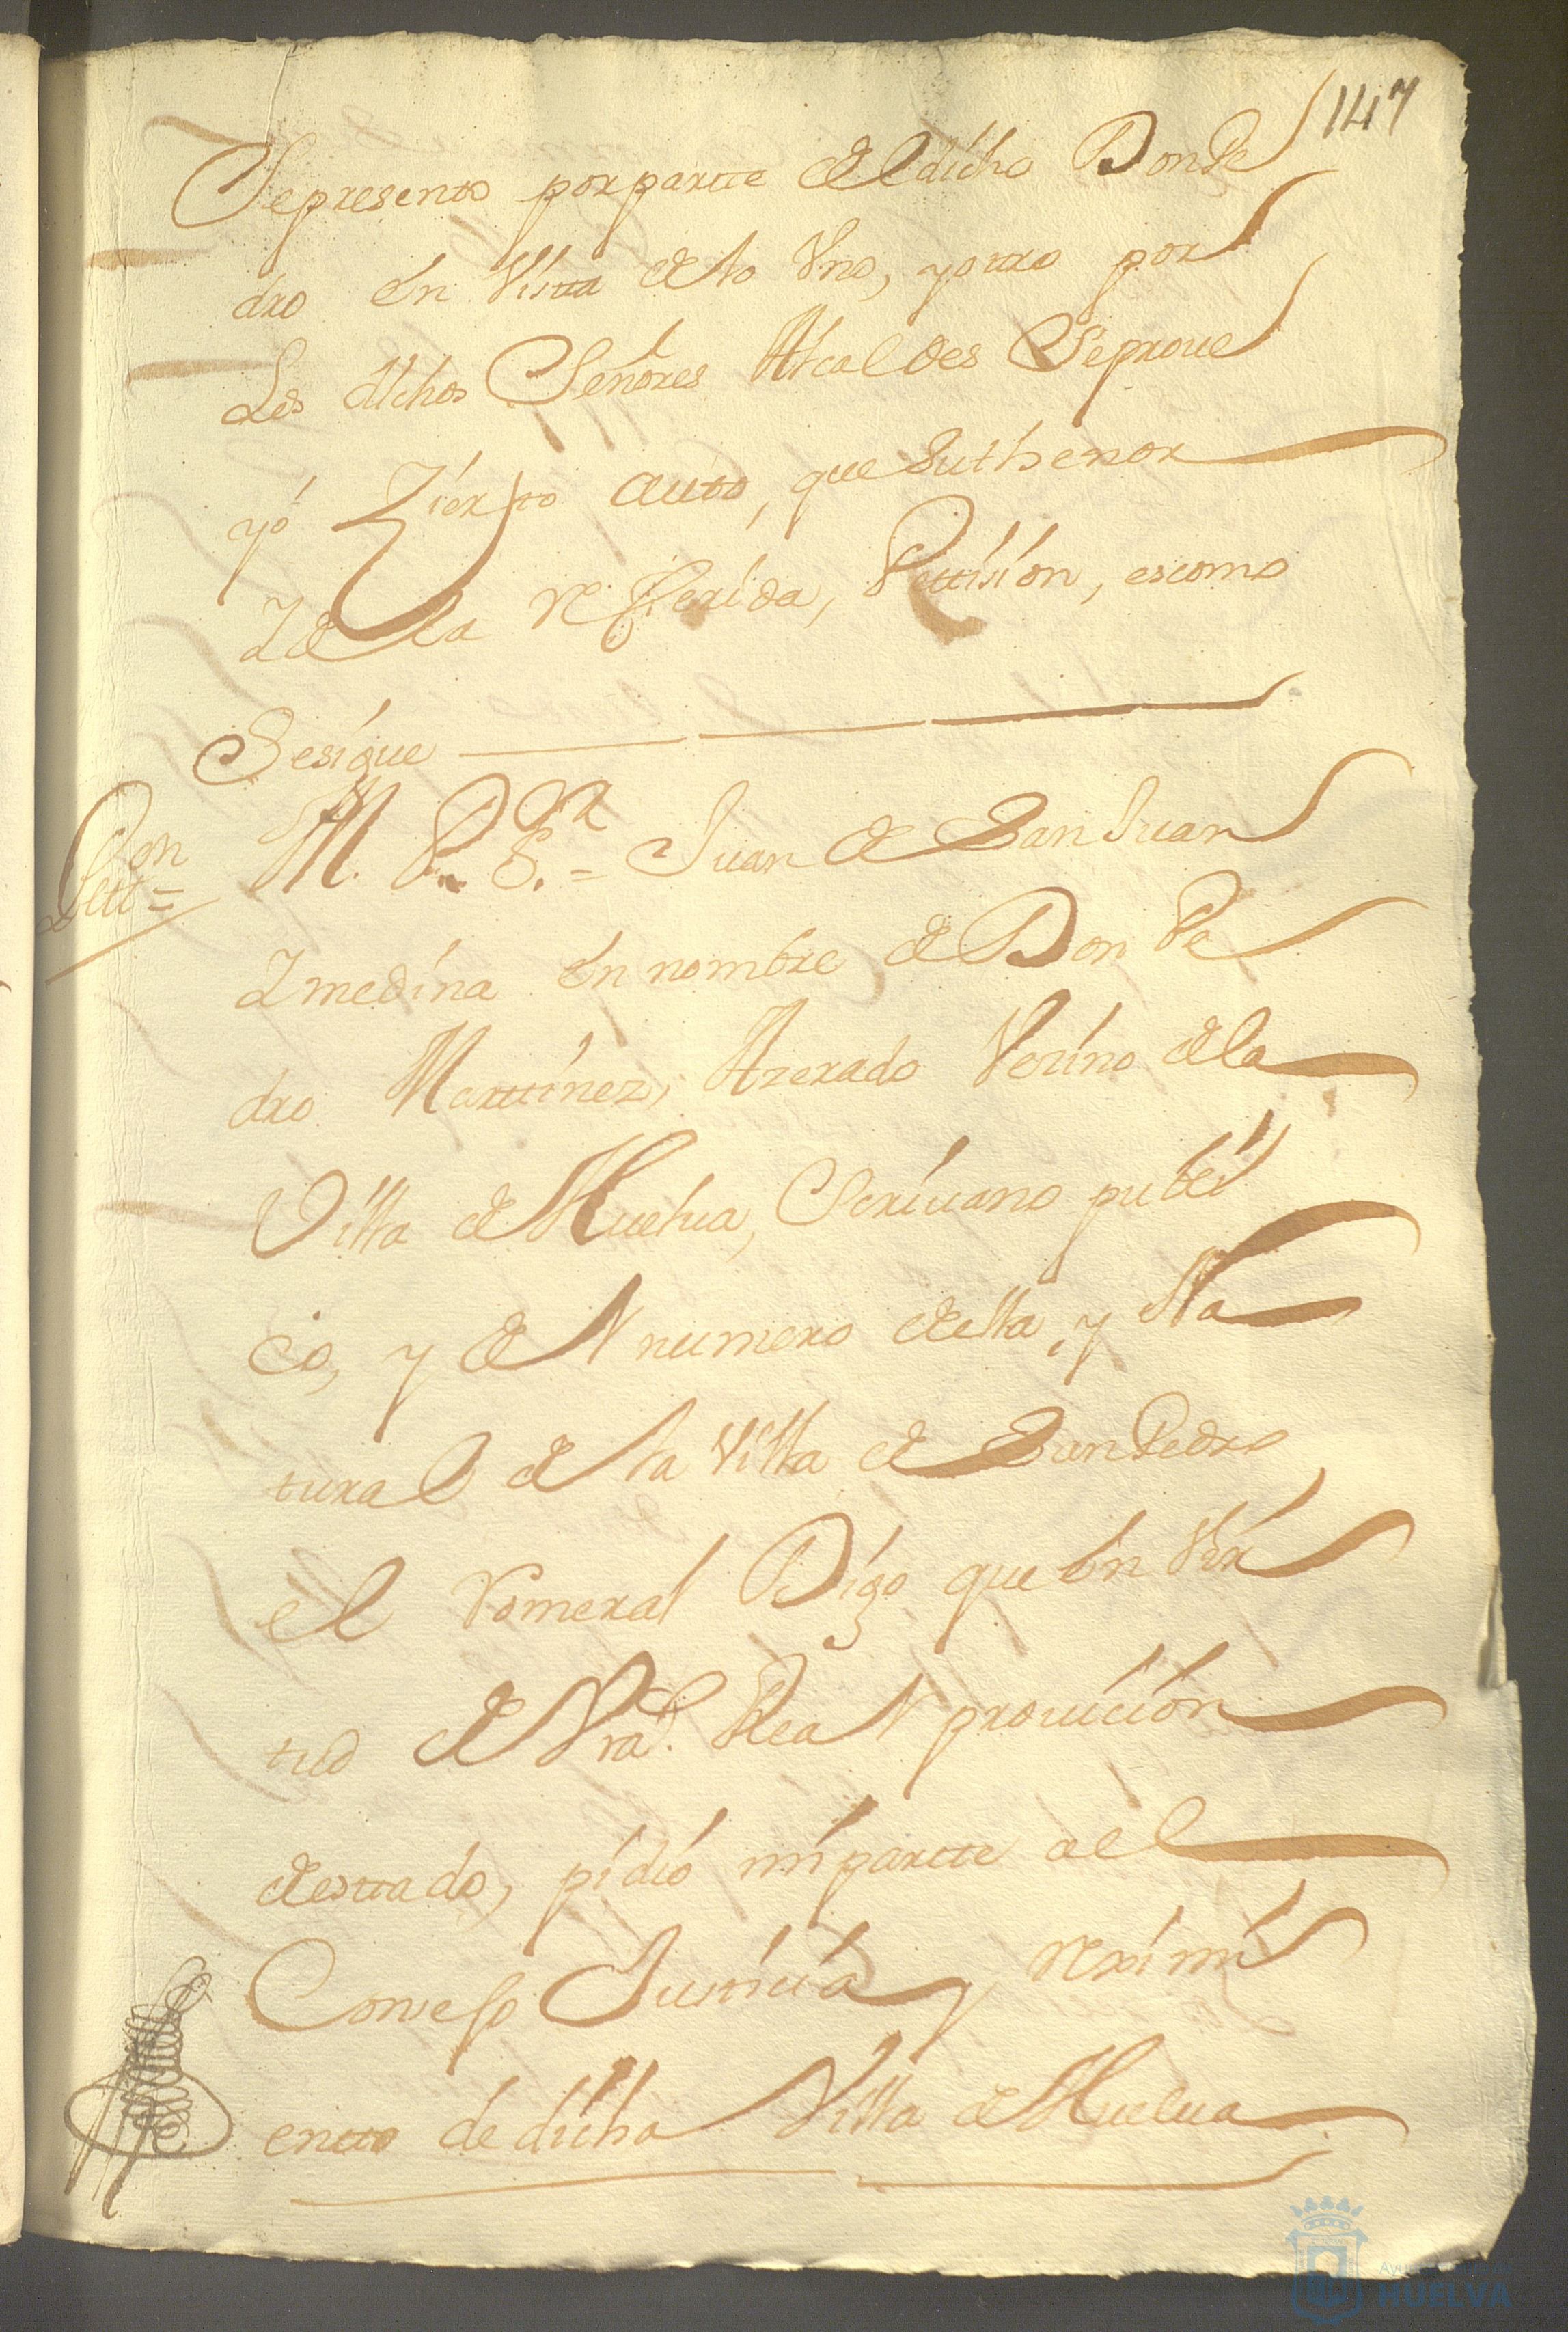 147
Sepresento porpartte del dicho Don Pe
dro en Vistta de lo Vno, yottro por
Los dichos Señores Alcaldes Seproue
yó Zierto autto, que suthenor
Ydela refferida, Pettisión, escomo
Sesígue
Petton=
M. P. S.or= Juan de San Juan
Ymedína en nombre de Don Pe
dro Marttínez, Azerado Vezíno dela
Villa de Huelua, Scríuano publi
co, y del numero della, y Na
tural de la Villa de San Pedro
el Romeral Dígo que en Vir
tud de Vra. Real prouición
desttado, pidió mi partte ael
Consejo Justicia y reximi
entto de dicha Villa de Huelua
Ayuntamiento de
HUELVA